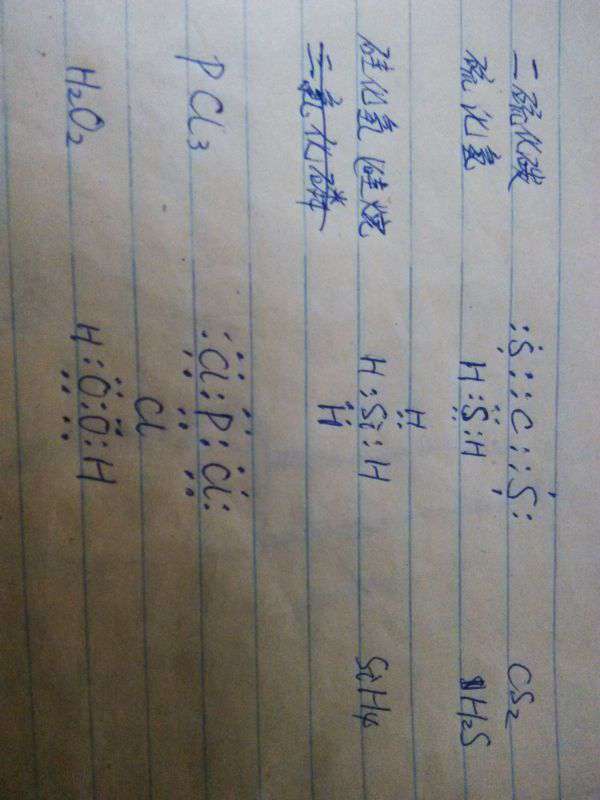 二硫化碳 :S::C::S: CS₂
硫化氢 H:S:H H₂S
H
硅化氢 硅烷 H:Si:H SiH₄
H
PCl₃ :Cl:P:Cl:
Cl
H₂O₂ H:O:O:H